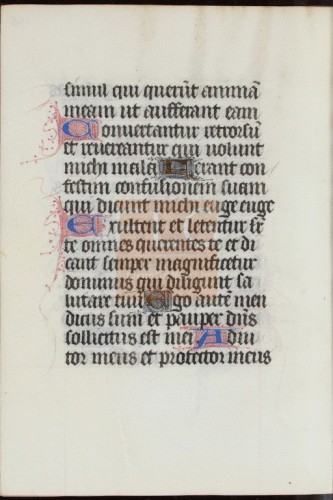 simul qui querũt animã
meam ut aufferant eam
Convertantur retrorsũ
et revereantur qui volunt
michi mala Ferant con
festim confusionem suam
qui dicunt michi euge euge
Exultent et letentur sr̄
te omnes querentes te et di
cant semper magnificetur
dominus qui diligunt sa
lutare tuũ Ego autẽ men
dicus sum et pauper dñs
sollicitus est mei Adiu
tor meus et protector meus